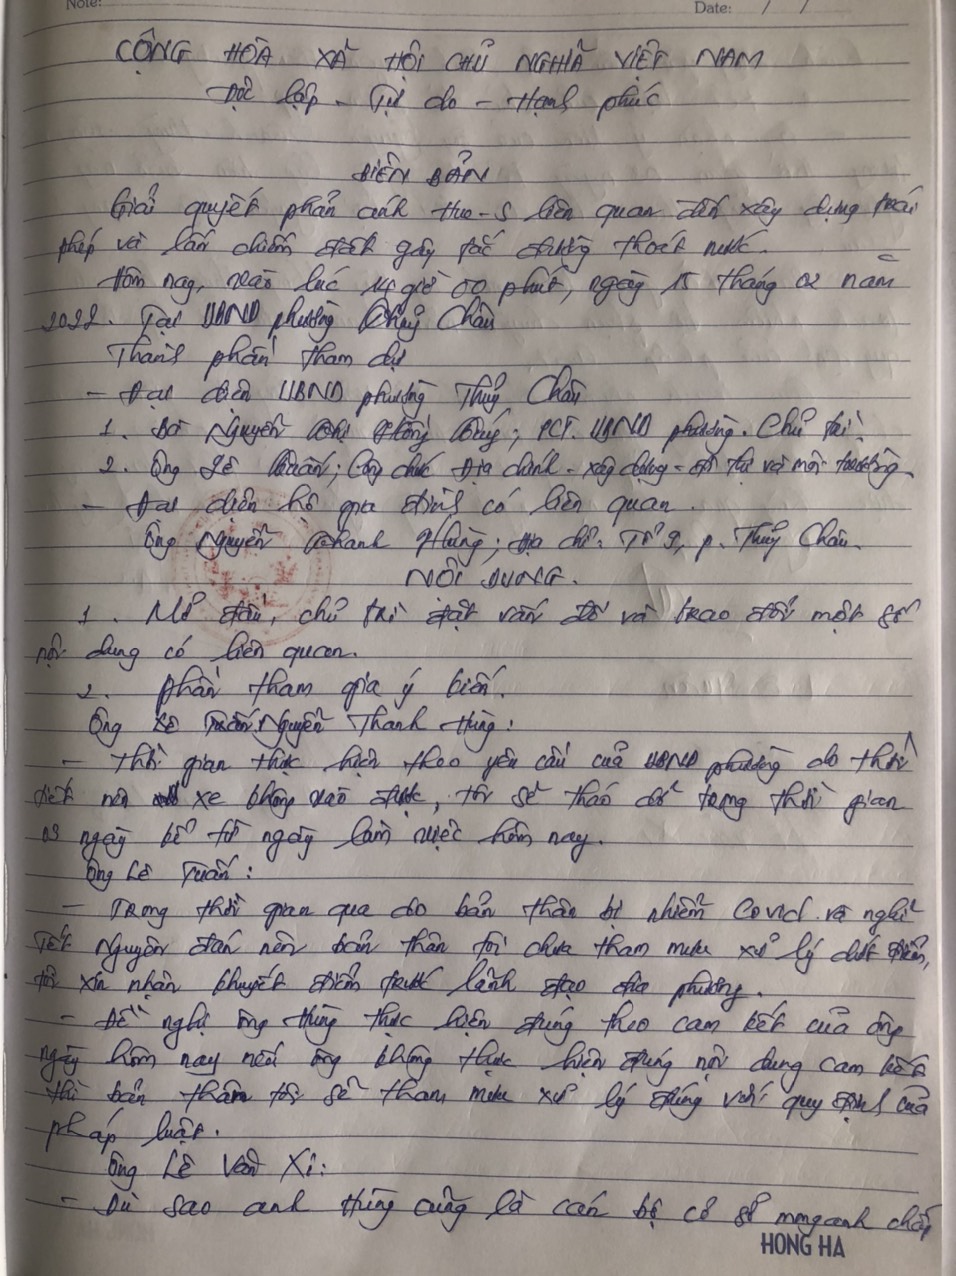 Note:
Date: / /
CỘNG HÒA XÃ HỘI CHỦ NGHĨA VIỆT NAM
Độc lập - Tự do - Hạnh phúc
BIÊN BẢN
Giải quyết phản ánh Hue-S liên quan đến xây dựng trái
phép và lấn chiếm đất gây tắc đường thoát nước.
Hôm nay, vào lúc 14 giờ 00 phút, ngày 15 tháng 02 năm
2022. Tại UBND phường Thủy Châu
Thành phần tham dự
- Đại diện UBND phường Thủy Châu
1. Bà Nguyễn Thị Hồng; PCT. UBND phường. Chủ trì.
2. Ông Lê Tuấn; Công chức Địa chính - xây dựng - đô thị và môi trường.
- Đại diện hộ gia đình có liên quan.
Ông Nguyễn Thanh Hùng; địa chỉ: Tổ 9, p. Thủy Châu.
NỘI DUNG.
1. Mở đầu, chủ trì đặt vấn đề và trao đổi một số
nội dung có liên quan.
2. Phần tham gia ý kiến.
Ông Nguyễn Thanh Hùng:
- Thời gian thực hiện theo yêu cầu của UBND phường do thời
tiết nên xe không vào được, tôi sẽ tháo dỡ trong thời gian
03 ngày kể từ ngày làm việc hôm nay.
Ông Lê Tuấn:
- Trong thời gian qua do bản thân bị nhiễm Covid và nghỉ
Tết Nguyên đán nên bản thân tôi chưa tham mưu xử lý dứt điểm,
tôi xin nhận khuyết điểm trước lãnh đạo địa phương.
- Đề nghị ông Hùng thực hiện đúng theo cam kết của ông
ngày hôm nay nếu ông không thực hiện đúng nội dung cam kết
thì bản thân tôi sẽ tham mưu xử lý đúng với quy định của
pháp luật.
Ông Lê Văn Xi:
- Dù sao anh Hùng cũng là cán bộ cơ sở mong anh chấp
HONG HA